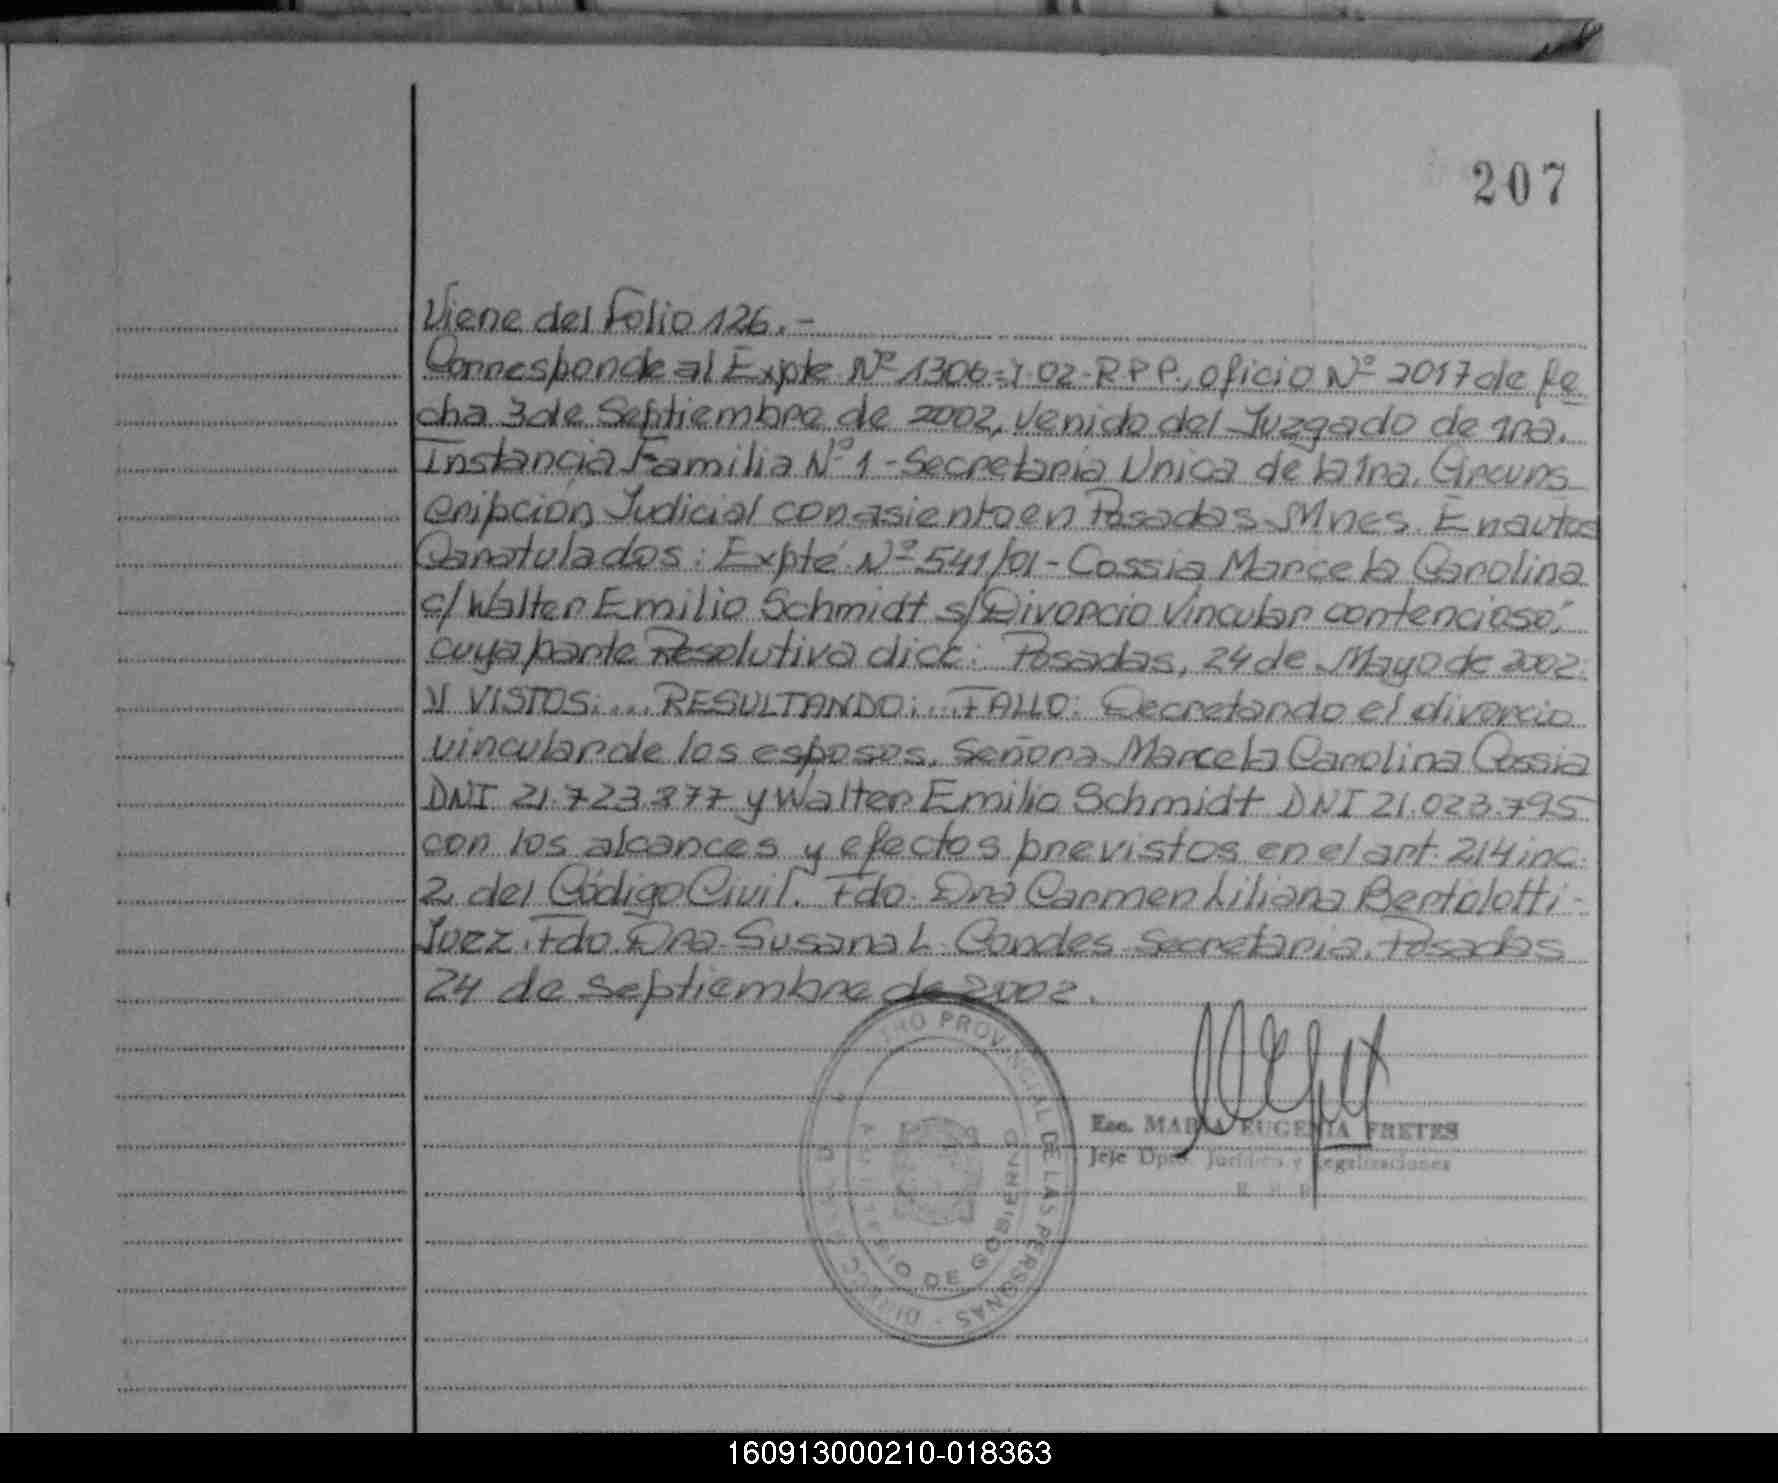 207
Viene del Folio 126.-
Corresponde al Expte Nº 1306-Y-02-R.P.P., oficio Nº 2017 de fe
cha 3 de Septiembre de 2002, venido del Juzgado de 1ra.
Instancia Familia Nº 1 - Secretaria Unica de la 1ra. Circuns
cripción Judicial con asiento en Posadas Mnes. En autos
Caratulados: Expte Nº 541/01 - Cossia Marcela Carolina
c/ Walter Emilio Schmidt s/ Divorcio Vincular contencioso",
cuya parte Resolutiva dice: Posadas, 24 de Mayo de 2002:
Y VISTOS:... RESULTANDO:... FALLO: Decretando el divorcio
vincular de los esposos, Señora Marcela Carolina Cossia
DNI 21.723.377 y Walter Emilio Schmidt DNI 21.023.795
con los alcances y efectos previstos en el art. 214 inc.
2, del Código Civil. Fdo. Dra Carmen Liliana Bertolotti -
Juez. Fdo. Dra. Susana L. Condes Secretaria. Posadas
24 de septiembre de 2002.
PROVINCIAL DE LAS PERSONAS
DE GOBIERNO
Esc. MARIA EUGENIA FRETES
Jefe Dpto. Jurídico y Legalizaciones
160913000210-018363